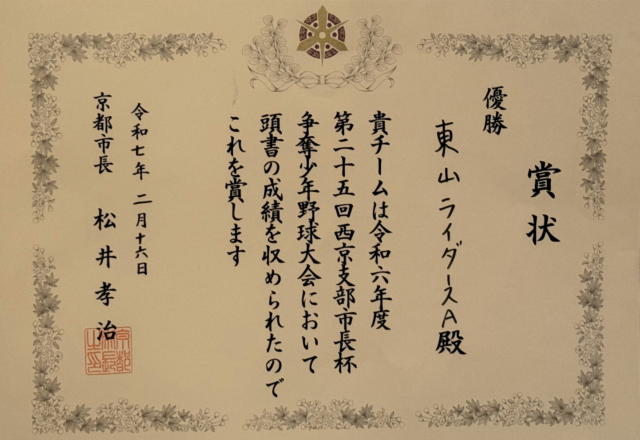 賞状
優勝
東山ライダースA殿
貴チームは令和六年度
第二十五回西京支部市長杯
争奪少年野球大会において
頭書の成績を収められたので
これを賞します
令和七年 二月十六日
京都市長 松井孝治